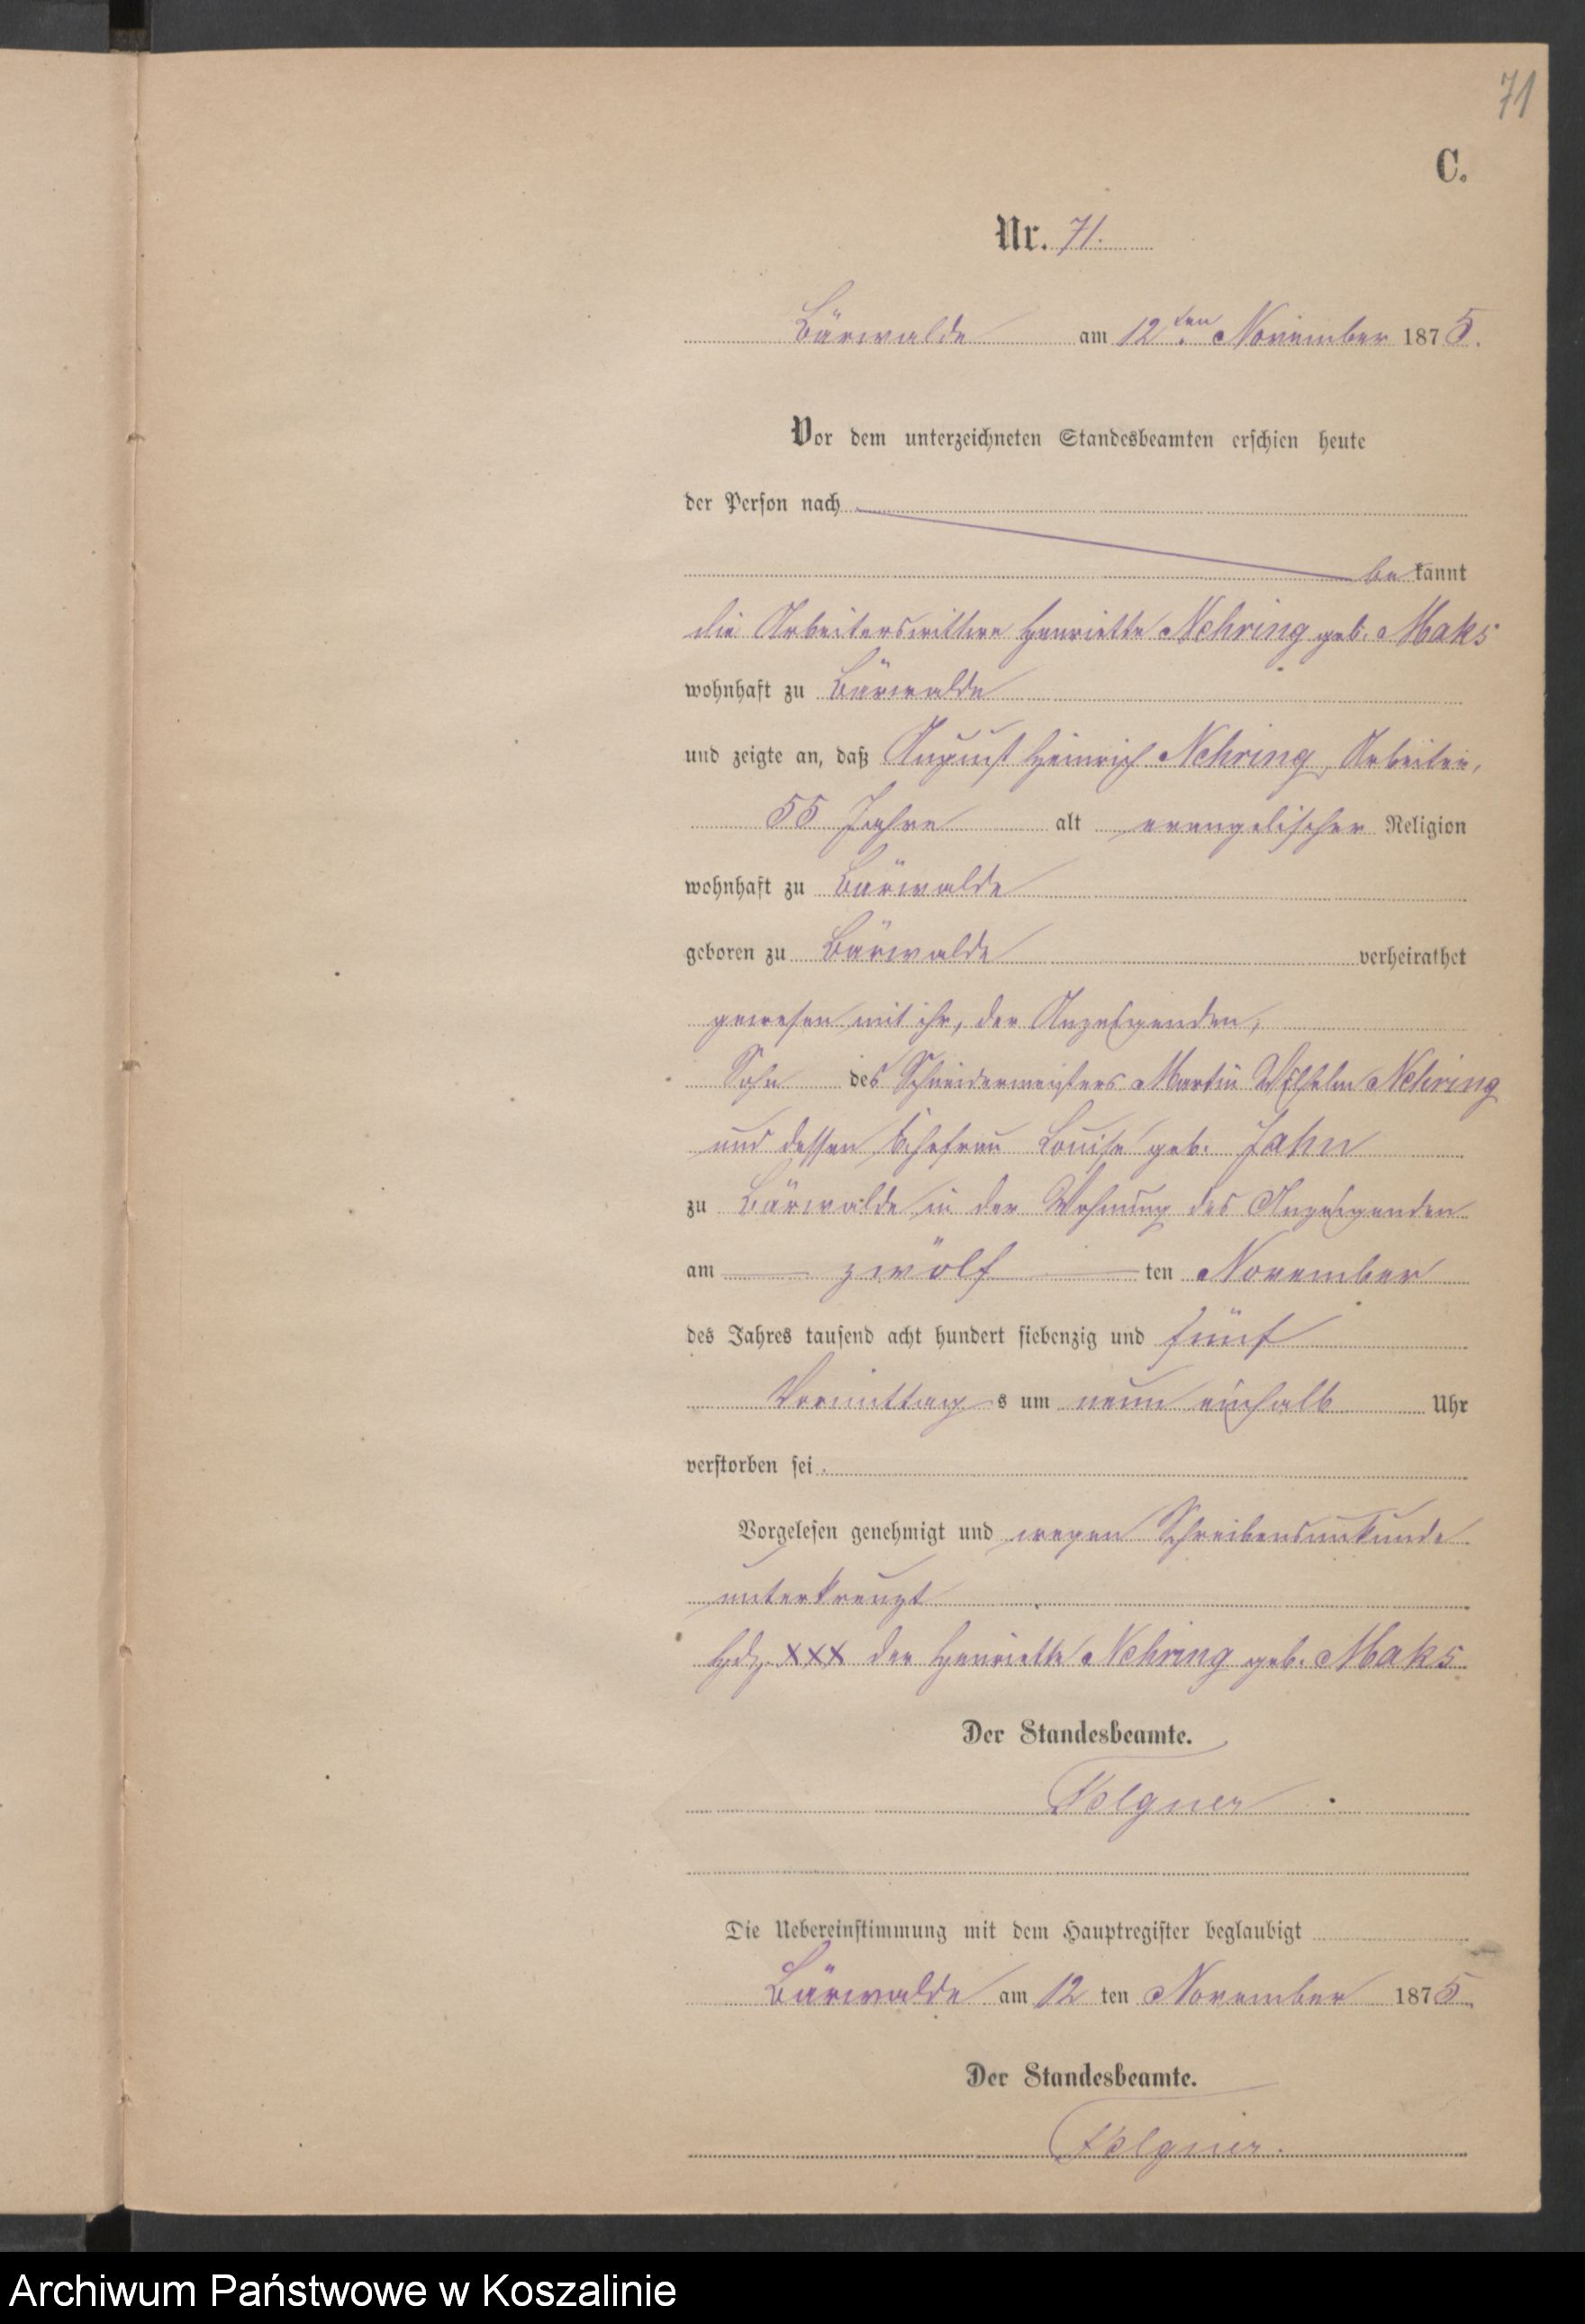 71
C.
Nr. 71.
Bärwalde am 12ten November 1875.
Vor dem unterzeichneten Standesbeamten erschien heute
der Person nach
bekannt
die Arbeiterswittwe Henriette Nehring geb. Maks
wohnhaft zu Bärwalde
und zeigte an, daß August Heinrich Nehring, Arbeiter,
55 Jahre alt evangelischer Religion
wohnhaft zu Bärwalde
geboren zu Bärwalde verheirathet
gewesen mit ihr, der Anzeigenden,
Sohn des Schneidermeisters Martin Wilhelm Nehring
und dessen Ehefrau Louise geb. Jahn
zu Bärwalde in der Wohnung des Anzeigenden
am zwölf ten November
des Jahres tausend acht hundert siebenzig und fünf
Vormittags um neun einhalb Uhr
verstorben sei.
Vorgelesen genehmigt und wegen Schreibensunkunde
unterkreuzt
Hdz. XXX der Henriette Nehring geb. Maks
Der Standesbeamte.
Folgner
Die Uebereinstimmung mit dem Hauptregister beglaubigt
Bärwalde am 12 ten November 1875.
Der Standesbeamte.
Folgner.
Archiwum Państwowe w Koszalinie